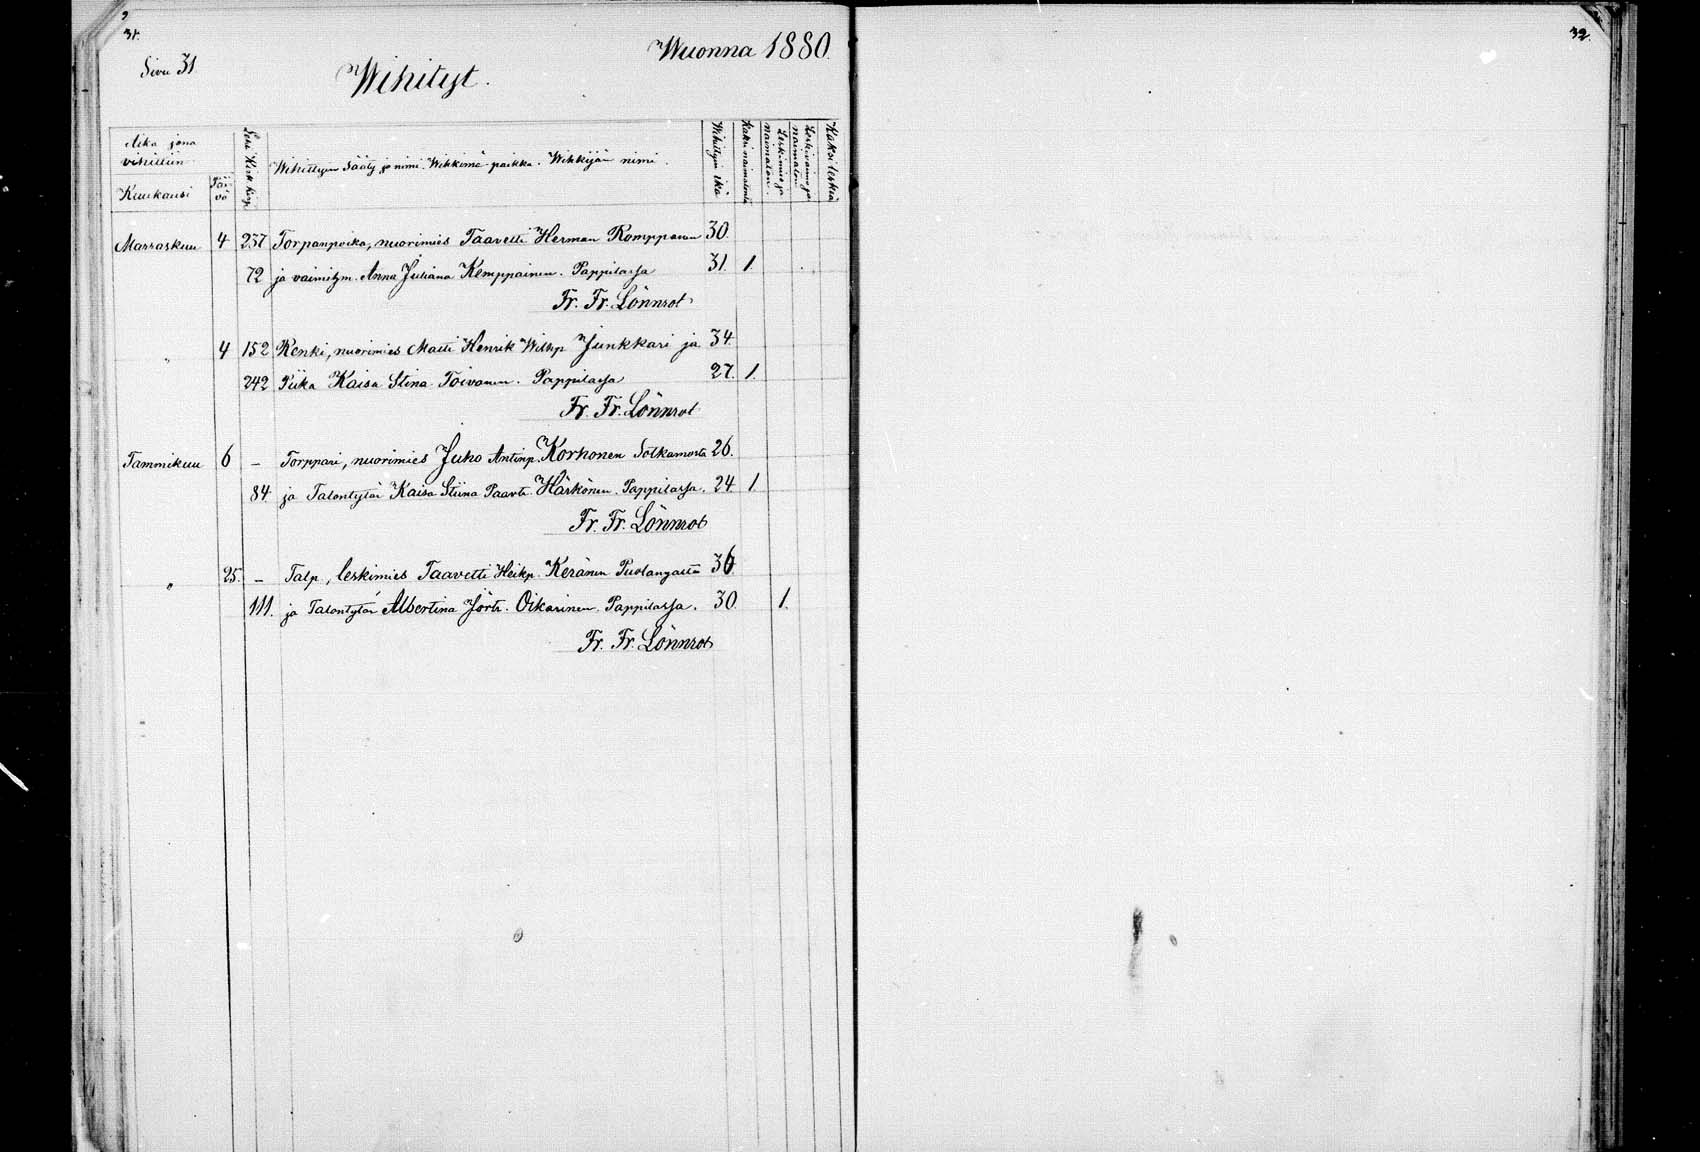 31.
32.
Sivu 31.
Wuonna 1880.
Wihityt.
Aika jona vihittiin
Kuukausi
Päivä
Wihittyin sääty ja nimi. Wihkimä-paikka. Wihkijän nimi.
Wihittyin ikä
Kaksi naimatonta
Leskimies ja naimaton.
Leskivaimo ja naimaton
Kaksi leskeä
Marraskuu 4 237 Torpanpoika, nuorimies Taavetti Herman Romppanen 30.
72 ja vaimitym. Anna Juliana Kemppainen. Pappilassa 31. 1.
Fr. Fr. Lönnrot
" 4 152 Renki, nuorimies Matti Henrik Wilhp Junkkari ja 34.
242 Piika Kaisa Stina Toivanen. Pappilassa 27. 1.
Fr. Fr. Lönnrot
Tammikuu 6 – Torppari, nuorimies Juho Antinp. Korhonen Sotkamosta 26.
84 ja Talontytär Kaisa Stiina Paavtr. Härkönen. Pappilassa. 24. 1.
Fr. Fr. Lönnrot
" 25. – Talp., leskimies Taavetti Heikp. Keränen Puolangalta 36
111. ja Talontytär Albertina Jörtr. Oikarinen. Pappilassa. 30. 1.
Fr. Fr. Lönnrot